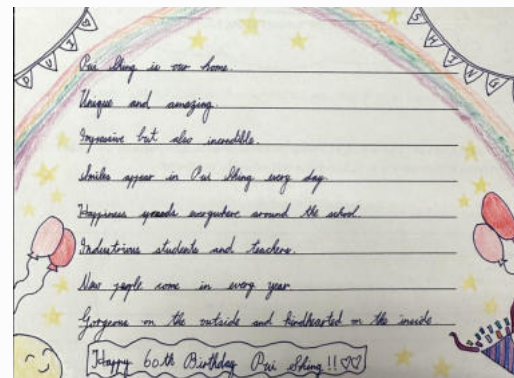 PUI
SHING
Pui Shing is our home.
Unique and amazing.
Impressive but also incredible.
Smiles appear in Pui Shing every day.
Happiness spreads everywhere around the school.
Industrious students and teachers.
New people come in every year
Gorgeous on the outside and kindhearted on the inside
Happy 60th Birthday Pui Shing!!♡♡